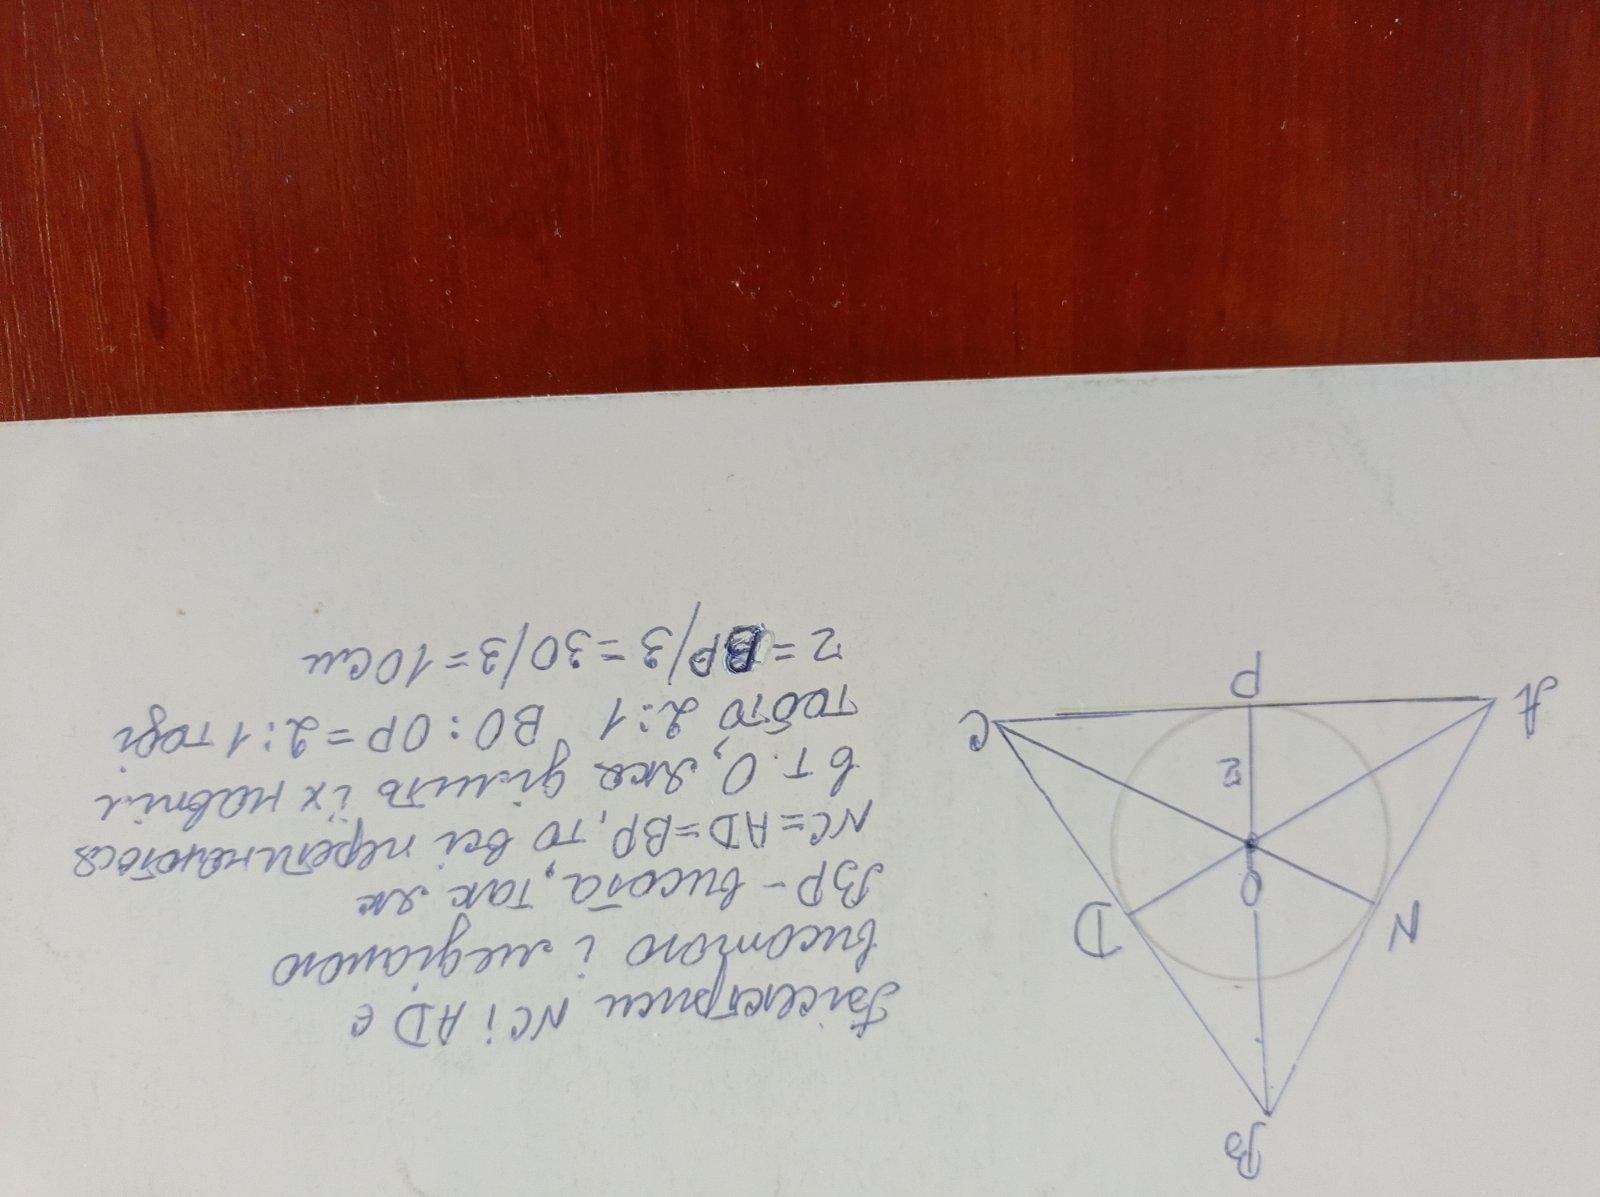 B
N
D
O
r
A
P
C
Бісектриси NC і AD є
висотою і медіаною
BP - висота, так як
NC = AD = BP, то всі перетинаються
в т. О, яка ділить їх навпіл
тобто 2:1 BO : OP = 2:1 тоді
r = BP/3 = 30/3 = 10см